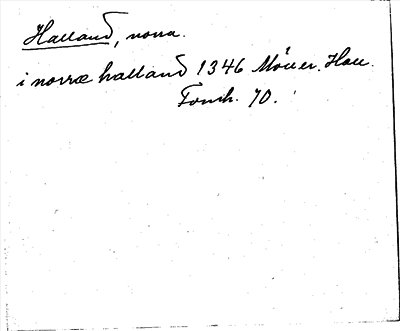 Halland, norra.
i norræ halland 1346 Möller. Hall.
Forsh. 70.